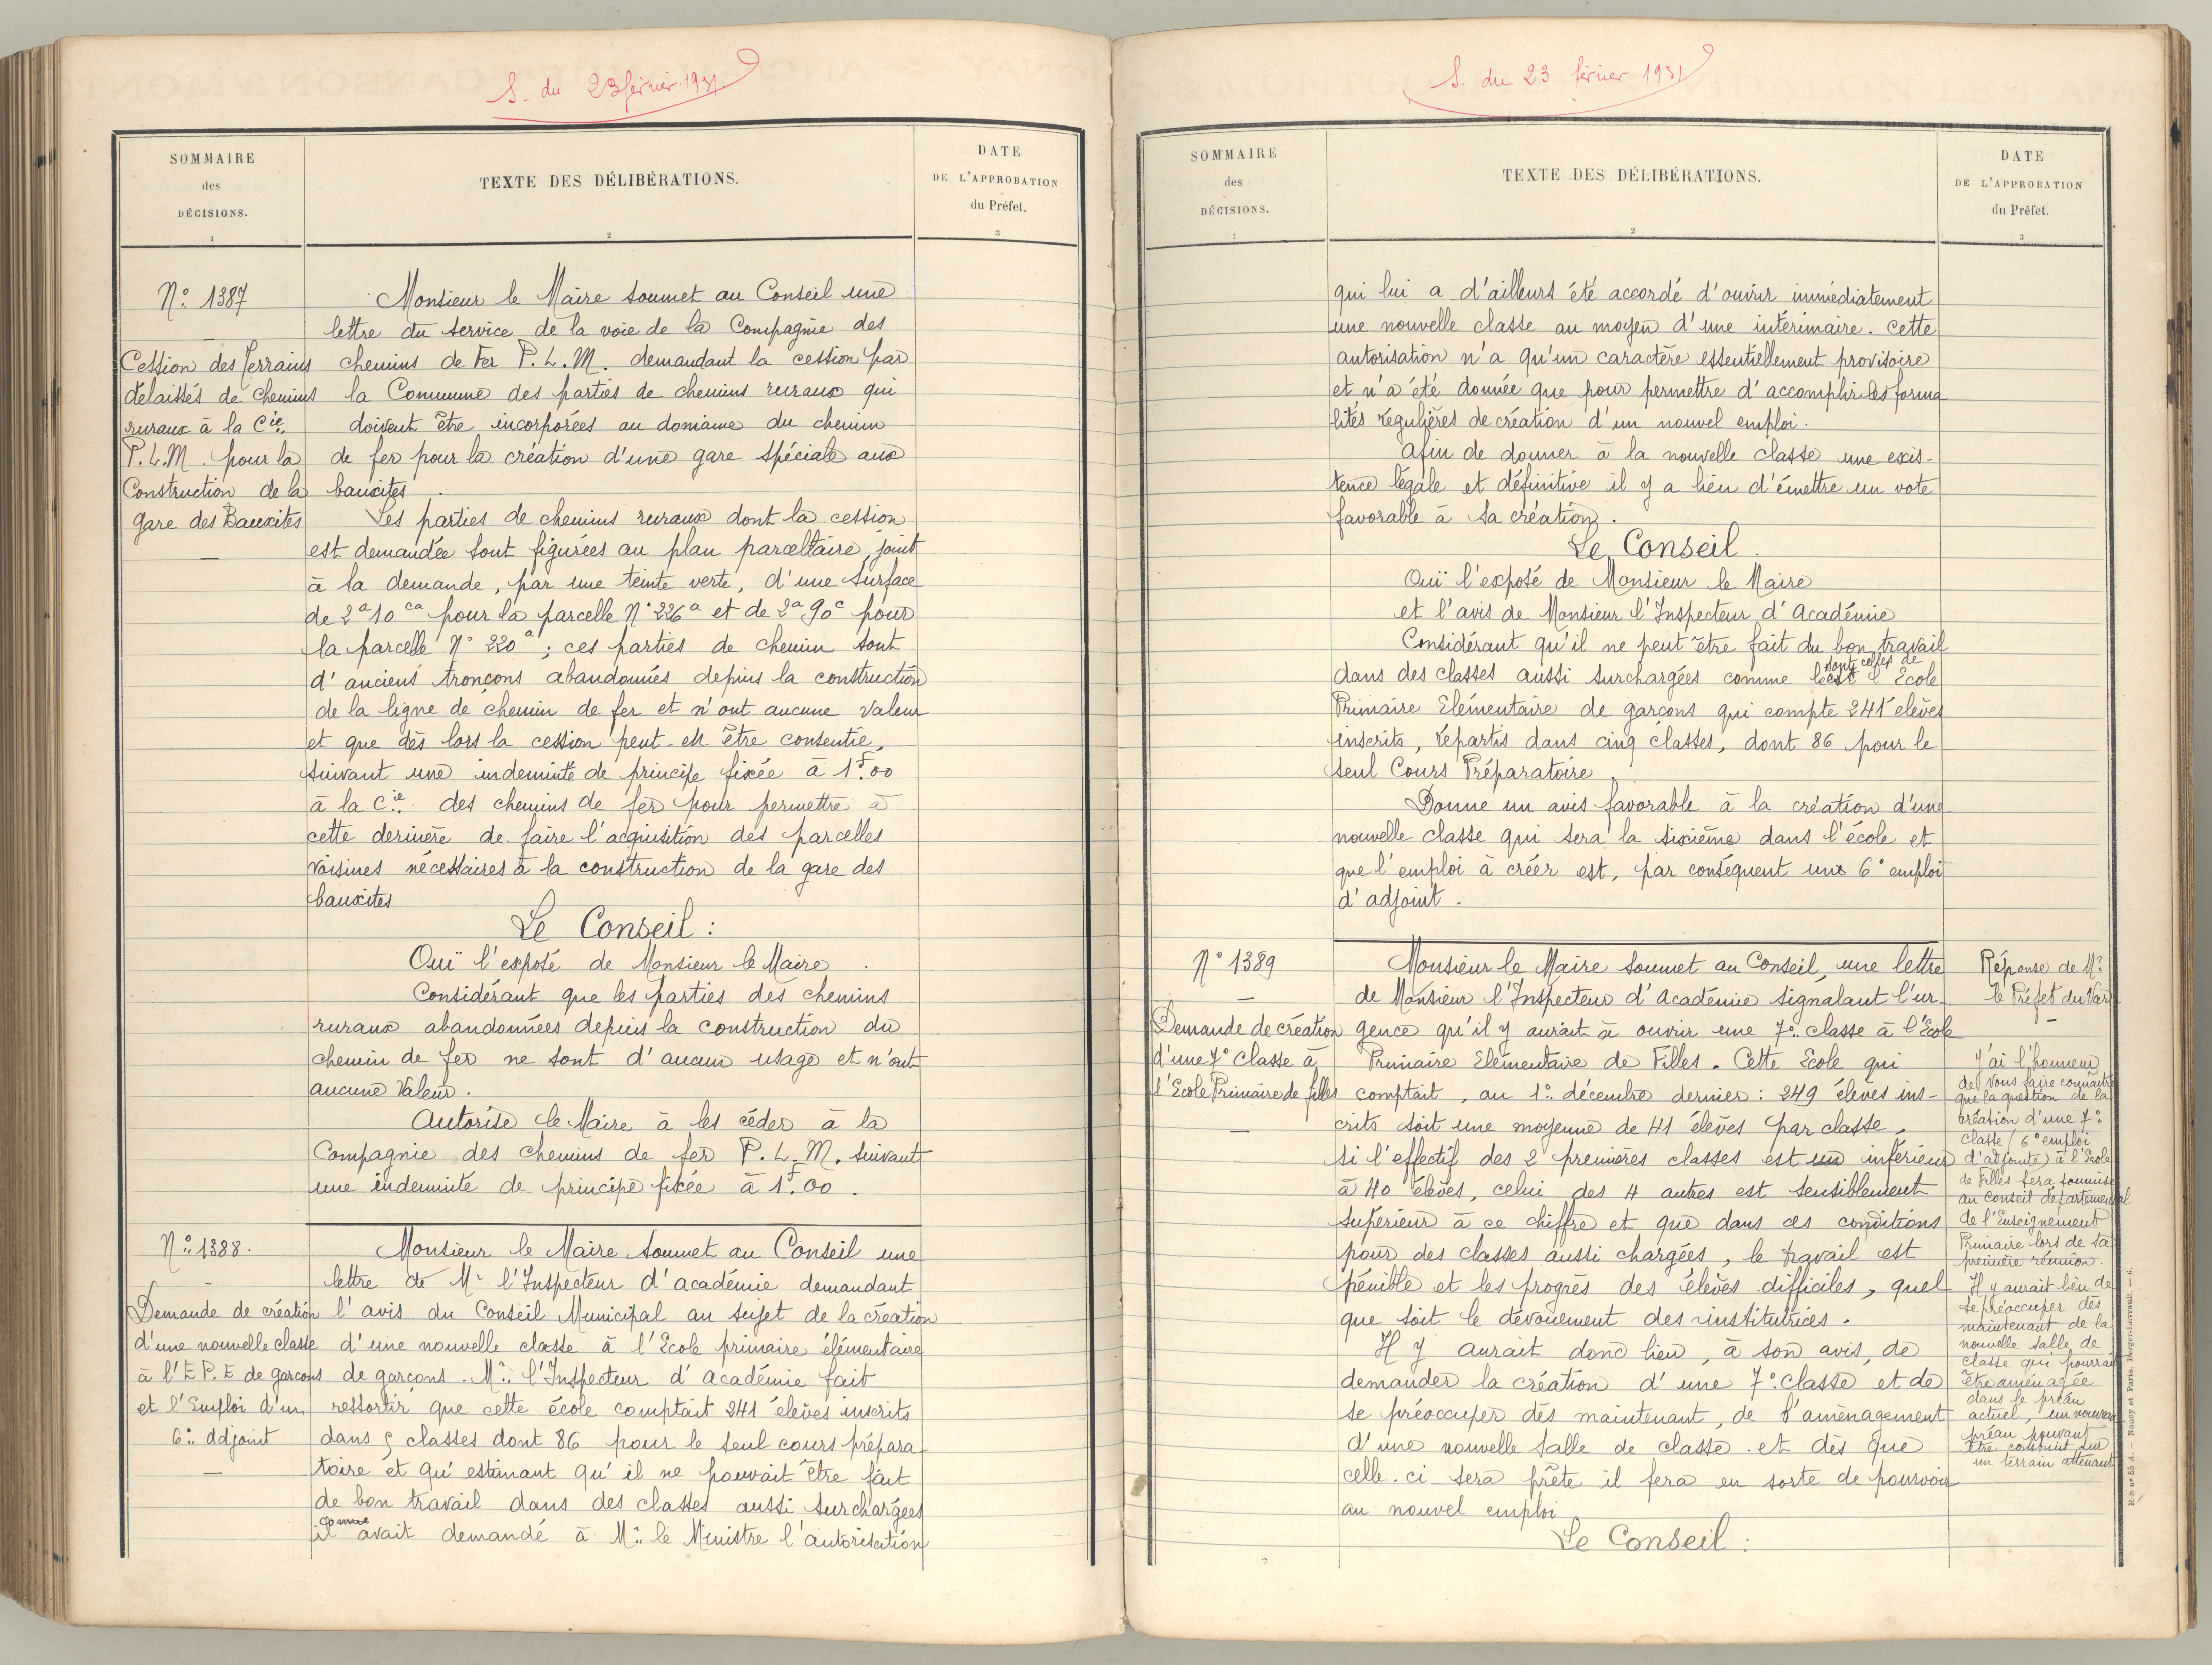 S. du 23 février 1931
SOMMAIRE
des
DÉCISIONS.
1
TEXTE DES DÉLIBÉRATIONS.
2
DATE
DE L'APPROBATION
du Préfet.
3
N° 1387
Cession des Terrains
délaissés de chemins
ruraux à la Cie
P.L.M. pour la
Construction de la
gare des Bauxites
Monsieur le Maire soumet au Conseil une
lettre du service de la voie de la Compagnie des
chemins de Fer P.L.M. demandant la cession par
la Commune des parties de chemins ruraux qui
doivent être incorporées au domaine du chemin
de fer pour la création d'une gare spéciale aux
bauxites.
Les parties de chemins ruraux dont la cession
est demandée sont figurées au plan parcellaire, joint
à la demande, par une teinte verte, d'une surface
de 2a 10ca pour la parcelle N° 226a et de 2a 90c pour
la parcelle N° 220a; ces parties de chemin sont
d'anciens tronçons abandonnés depuis la construction
de la ligne de chemin de fer et n'ont aucune valeur
et que dès lors la cession peut-en être consentie,
suivant une indemnité de principe fixée à 1f.00
à la Cie des chemins de fer pour permettre à
cette dernière de faire l'acquisition des parcelles
voisines nécessaires à la construction de la gare des
bauxites
Le Conseil :
Ouï l'exposé de Monsieur le Maire.
Considérant que les parties des chemins
ruraux abandonnées depuis la construction du
chemin de fer ne sont d'aucun usage et n'ont
aucune valeur.
Autorise le Maire à les céder à la
Compagnie des chemins de fer P.L.M. suivant
une indemnité de principe fixée à 1f.00.
N° 1388.
Demande de création
d'une nouvelle classe
à l'E.P.E de garçons
et l'Emploi d'un
6° adjoint
Monsieur le Maire soumet au Conseil une
lettre de Mr l'Inspecteur d'académie demandant
l'avis du Conseil Municipal au sujet de la création
d'une nouvelle classe à l'Ecole primaire élémentaire
de garçons. Mr l'Inspecteur d'académie fait
ressortir que cette école comptait 241 élèves inscrits
dans 5 classes dont 86 pour le seul cours prépara-
toire et qu'estimant qu'il ne pouvait être fait
de bon travail dans des classes aussi surchargées
il avait demandé à Mr le Ministre l'autorisation
S. du 23 février 1931
SOMMAIRE
des
DÉCISIONS.
1
TEXTE DES DÉLIBÉRATIONS.
2
DATE
DE L'APPROBATION
du Préfet.
3
qui lui a d'ailleurs été accordé d'ouvrir immédiatement
une nouvelle classe au moyen d'une intérimaire. Cette
autorisation n'a qu'un caractère essentiellement provisoire
et n'a été donnée que pour permettre d'accomplir les forma
lités régulières de création d'un nouvel emploi.
Afin de donner à la nouvelle classe une exis-
tence légale et définitive il y a lieu d'émettre un vote
favorable à sa création.
Le Conseil.
Ouï l'exposé de Monsieur le Maire
et l'avis de Monsieur l'Inspecteur d'Académie
Considérant qu'il ne peut être fait du bon travail
dans des classes aussi surchargées comme sont celles de l'Ecole
Primaire Elémentaire de garçons qui compte 241 élèves
inscrits, répartis dans cinq classes, dont 86 pour le
seul Cours Préparatoire
Donne un avis favorable à la création d'une
nouvelle classe qui sera la sixième dans l'école et
que l'emploi à créer est, par conséquent un 6° emploi
d'adjoint.
N° 1389
Demande de création
d'une 7° classe à
l'Ecole Primaire de filles
Monsieur le Maire soumet au Conseil, une lettre
de Monsieur l'Inspecteur d'Académie signalant l'ur-
gence qu'il y aurait à ouvrir une 7° classe à l'Ecole
Primaire Elémentaire de Filles. Cette Ecole qui
comptait, au 1° décembre dernier : 249 élèves ins-
crits soit une moyenne de 41 élèves par classe,
si l'effectif des 2 premières classes est un inférieur
à 40 élèves, celui des 4 autres est sensiblement
supérieur à ce chiffre et que dans ces conditions
pour des classes aussi chargées, le travail est
pénible et les progrès des élèves difficiles, quel
que soit le dévouement des institutrices.
Il y aurait donc lieu, à son avis, de
demander la création d'une 7° classe et de
se préoccuper dès maintenant, de l'aménagement
d'une nouvelle salle de classe et dès que
celle-ci sera prête il fera en sorte de pourvoir
au nouvel emploi
Le Conseil :
Réponse de Mr
le Préfet du Var
J'ai l'honneur
de vous faire connaître
que la question de la
création d'une 7°
classe (6° emploi
d'adjointe) à l'Ecole
de Filles sera soumise
au Conseil départemental
de l'Enseignement
Primaire lors de sa
première réunion.
Il y aurait lieu de
se préoccuper dès
maintenant de la
nouvelle salle de
classe qui pourrait
être aménagée
dans le préau
actuel, un nouveau
préau pouvant
être construit sur
un terrain attenant
Nancy et Paris. Berger-Levrault. — 6.